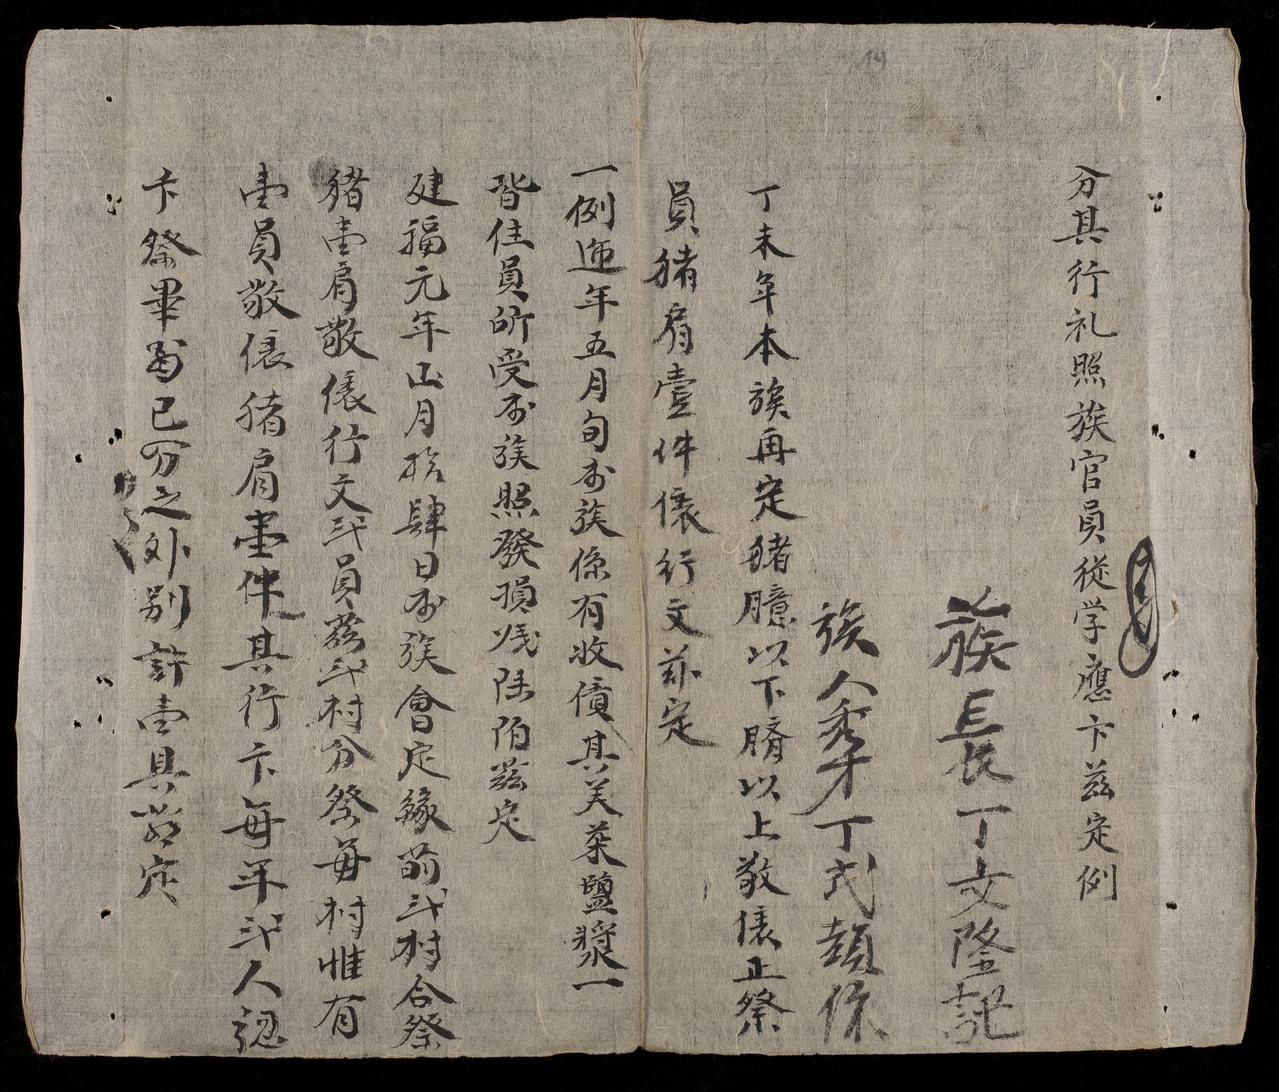 分其行礼照族官員從学應卞兹定例
族長丁文隆記
族人秀才丁式頡係
丁未年本族再定猪臆以下臍以上敬俵正祭
員猪肩壹件俵行文兹定
一例递年五月旬本族係有收債其芙菜鹽漿一
皆住員所受本族照發損残陸陌兹定
建福元年四月拾肆日本族會定緣前弍村合祭
猪壹肩敬俵行文弍員兹弍村分祭每村惟有
壹員敬俵猪肩壹件其行卞每年弍人認
卞祭畢 已分之外别許壹具兹定